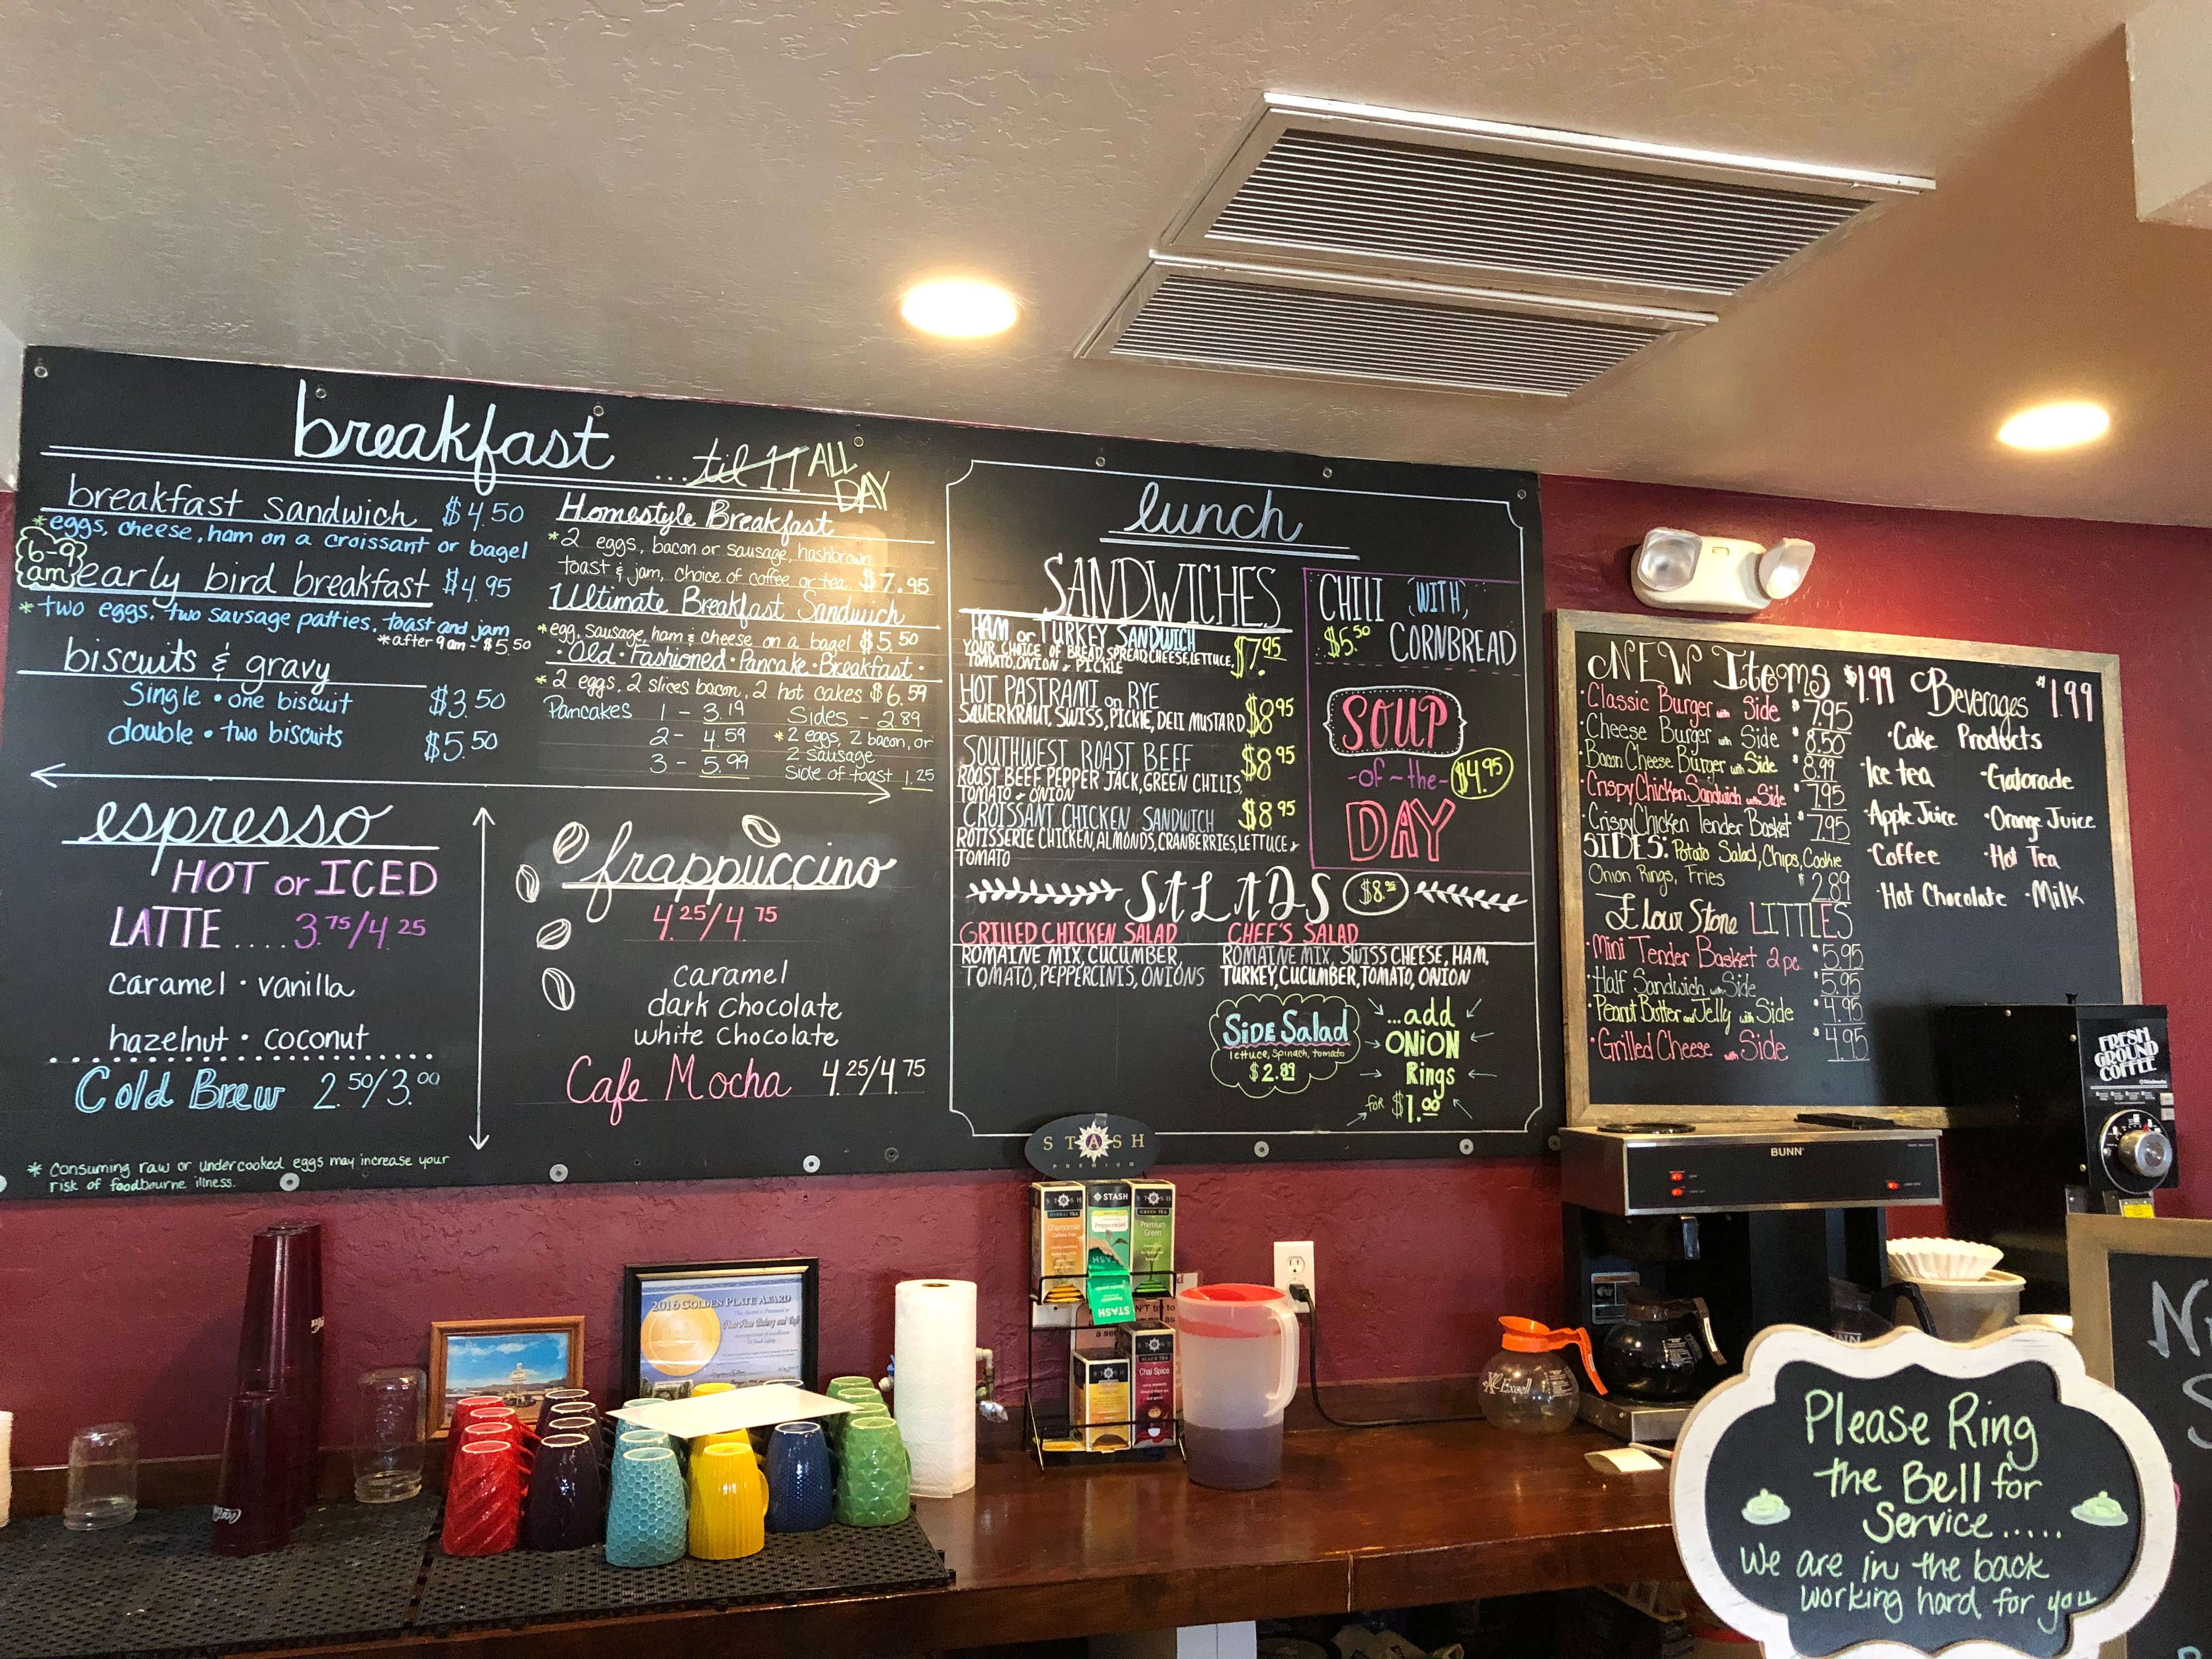 breakfast ...til 11 ALL DAY
breakfast sandwich $4.50
*eggs, cheese, ham on a croissant or bagel
6-9 am
early bird breakfast $4.95
*two eggs, two sausage patties, toast and jam
*after 9am - $5.50
biscuits & gravy
Single • one biscuit $3.50
double • two biscuits $5.50
Homestyle Breakfast
*2 eggs, bacon or sausage, hashbrown
toast & jam, choice of coffee or tea $7.95
Ultimate Breakfast Sandwich
*egg, sausage, ham & cheese on a bagel $5.50
•Old•Fashioned•Pancake•Breakfast•
*2 eggs, 2 slices bacon, 2 hot cakes $6.59
Pancakes 1 - 3.19
2 - 4.59
3 - 5.99
Sides - 2.89
*2 eggs, 2 bacon, or
2 sausage
Side of toast 1.25
espresso
HOT or ICED
LATTE .... 3.75/4.25
caramel • vanilla
hazelnut • coconut
Cold Brew 2.50/3.00
* Consuming raw or undercooked eggs may increase your
risk of foodbourne illness.
frappuccino
4.25/4.75
caramel
dark chocolate
white chocolate
Cafe Mocha 4.25/4.75
lunch
SANDWICHES
HAM or TURKEY SANDWICH $7.95
YOUR CHOICE OF BREAD, SPREAD, CHEESE, LETTUCE,
TOMATO, ONION & PICKLE
HOT PASTRAMI on RYE $8.95
SAUERKRAUT, SWISS, PICKLE, DELI MUSTARD
SOUTHWEST ROAST BEEF $8.95
ROAST BEEF, PEPPER JACK, GREEN CHILIS,
TOMATO & ONION
CROISSANT CHICKEN SANDWICH $8.95
ROTISSERIE CHICKEN, ALMONDS, CRANBERRIES, LETTUCE &
TOMATO
CHILI WITH
$5.50 CORNBREAD
SOUP
-of-the-
$4.95
DAY
SALADS
GRILLED CHICKEN SALAD
ROMAINE MIX, CUCUMBER,
TOMATO, PEPPERCINIS, ONIONS
CHEF'S SALAD
ROMAINE MIX, SWISS CHEESE, HAM,
TURKEY, CUCUMBER, TOMATO, ONION
Side Salad
lettuce, spinach, tomato
$2.89
...add
ONION
Rings
for $1.00
NEW Items $1.99
•Classic Burger with Side $7.95
•Cheese Burger with Side $8.50
•Bacon Cheese Burger with Side $8.99
•Crispy Chicken Sandwich with Side $7.95
•Crispy Chicken Tender Basket $7.95
SIDES: Potato Salad, Chips, Cookie
Onion Rings, Fries $2.89
Flour Stone LITTLES
•Mini Tender Basket 2pc. $5.95
•Half Sandwich with Side $5.95
•Peanut Butter and Jelly with Side $4.95
•Grilled Cheese with Side $4.95
Beverages $1.99
•Coke Products
•Ice tea •Gatorade
•Apple Juice •Orange Juice
•Coffee •Hot Tea
•Hot Chocolate •Milk
FRESH
GROUND
COFFEE
BUNN
STASH
PREMIUM
STASH
STASH
STASH
Chamomile
Peppermint
Premium
Green
STASH
STASH
STASH
Chai Spice
2016 GOLDEN PLATE AWARD
Coca-Cola
Please Ring
the Bell for
Service.....
We are in the back
working hard for you